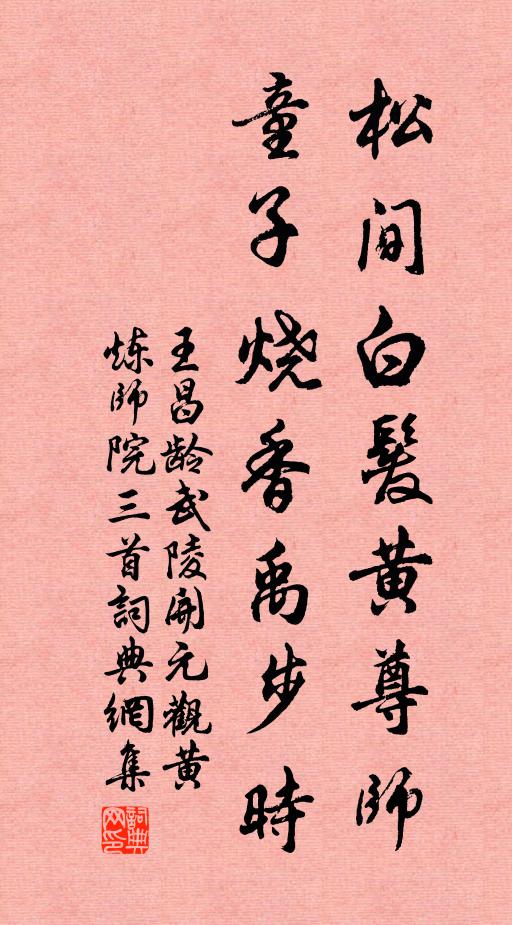 松间白髮黄尊师
童子烧香禹步时
王昌龄武陵開元觀黄
炼師院三首詞典網集
詞典网印